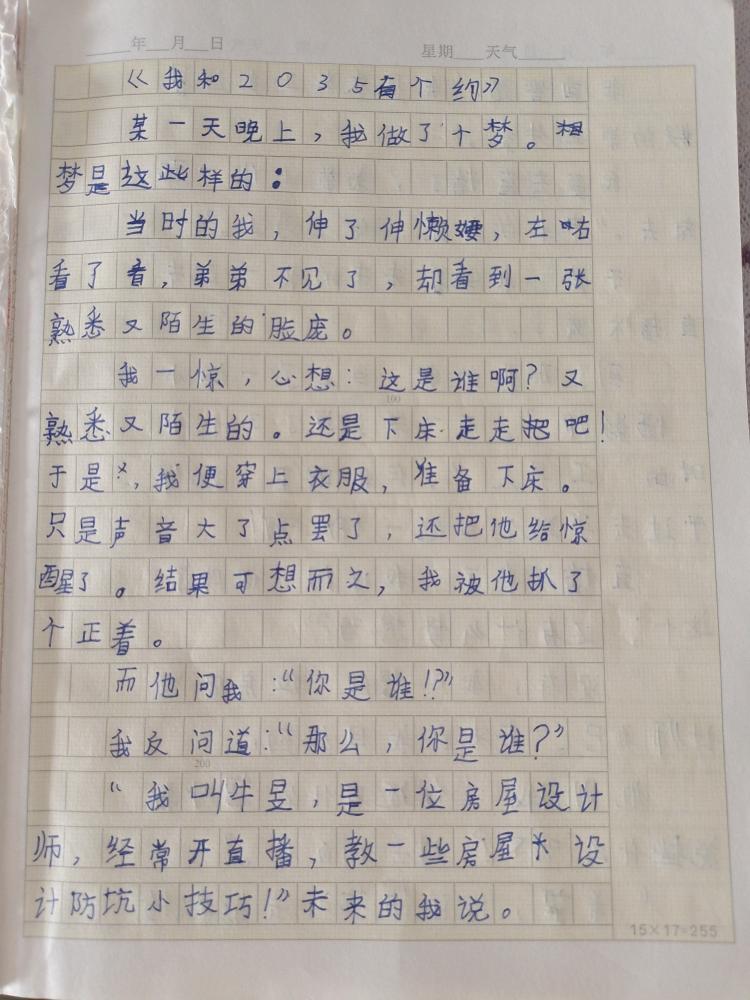 年 月 日 星期 天气
《我和2035有个约》
某一天晚上，我做了个梦。
梦是这些样的：
当时的我，伸了伸懒腰，左咕
看了看，弟弟不见了，却看到一张
熟悉又陌生的脸庞。
我一惊，心想：这是谁啊？又
100
熟悉又陌生的。还是下床走走把吧！
于是，我便穿上衣服，准备下床。
只是声音大了点罢了，还把他给惊
醒了。结果可想而之，我被他抓了
个正着。
而他问我：“你是谁！？”
我反问道：“那么，你是谁？”
200
“我叫牛昱，是一位房屋设计
师，经常开直播，教一些房屋设
计防坑小技巧！”未来的我说。
15×17=255